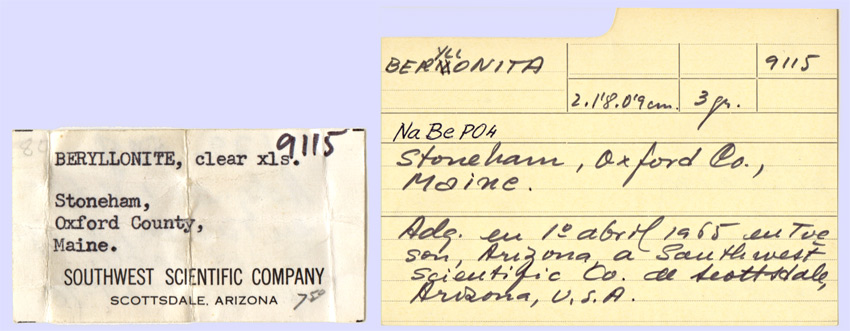 80
9115
BERYLLONITE, clear xls.
Stoneham,
Oxford County,
Maine.
SOUTHWEST SCIENTIFIC COMPANY
SCOTTSDALE, ARIZONA
750
BERYLLONITA
9115
2.1'8.0'9cm. 3 gr.
NaBePO4
Stoneham, Oxford Co.,
Maine.
Adq. en 1º abril 1965 en Tuc
son, Arizona, a Southwest
Scientific Co. de Scottsdale,
Arizona, U.S.A.